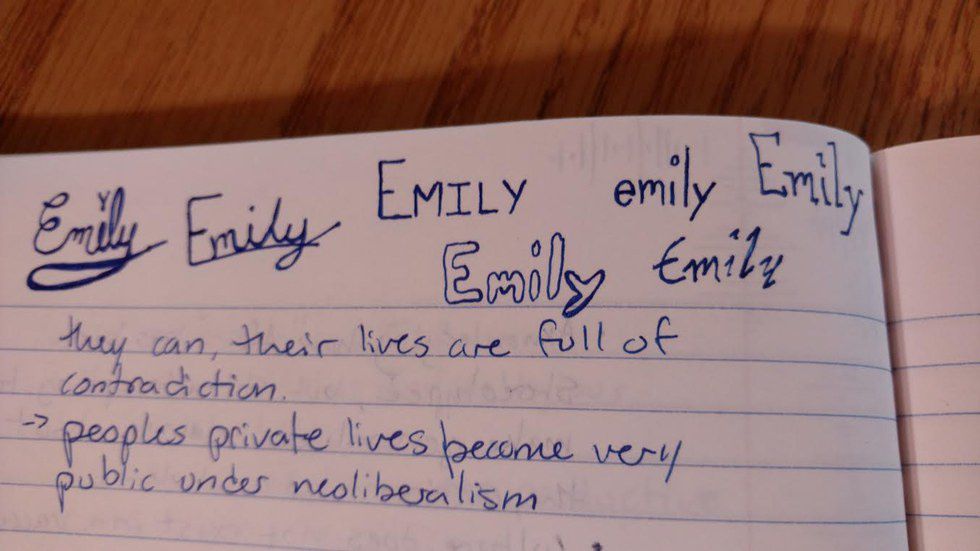 Emily Emily EMILY emily Emily
Emily Emily
they can, their lives are full of
contradiction.
→ peoples private lives become very
public under neoliberalism